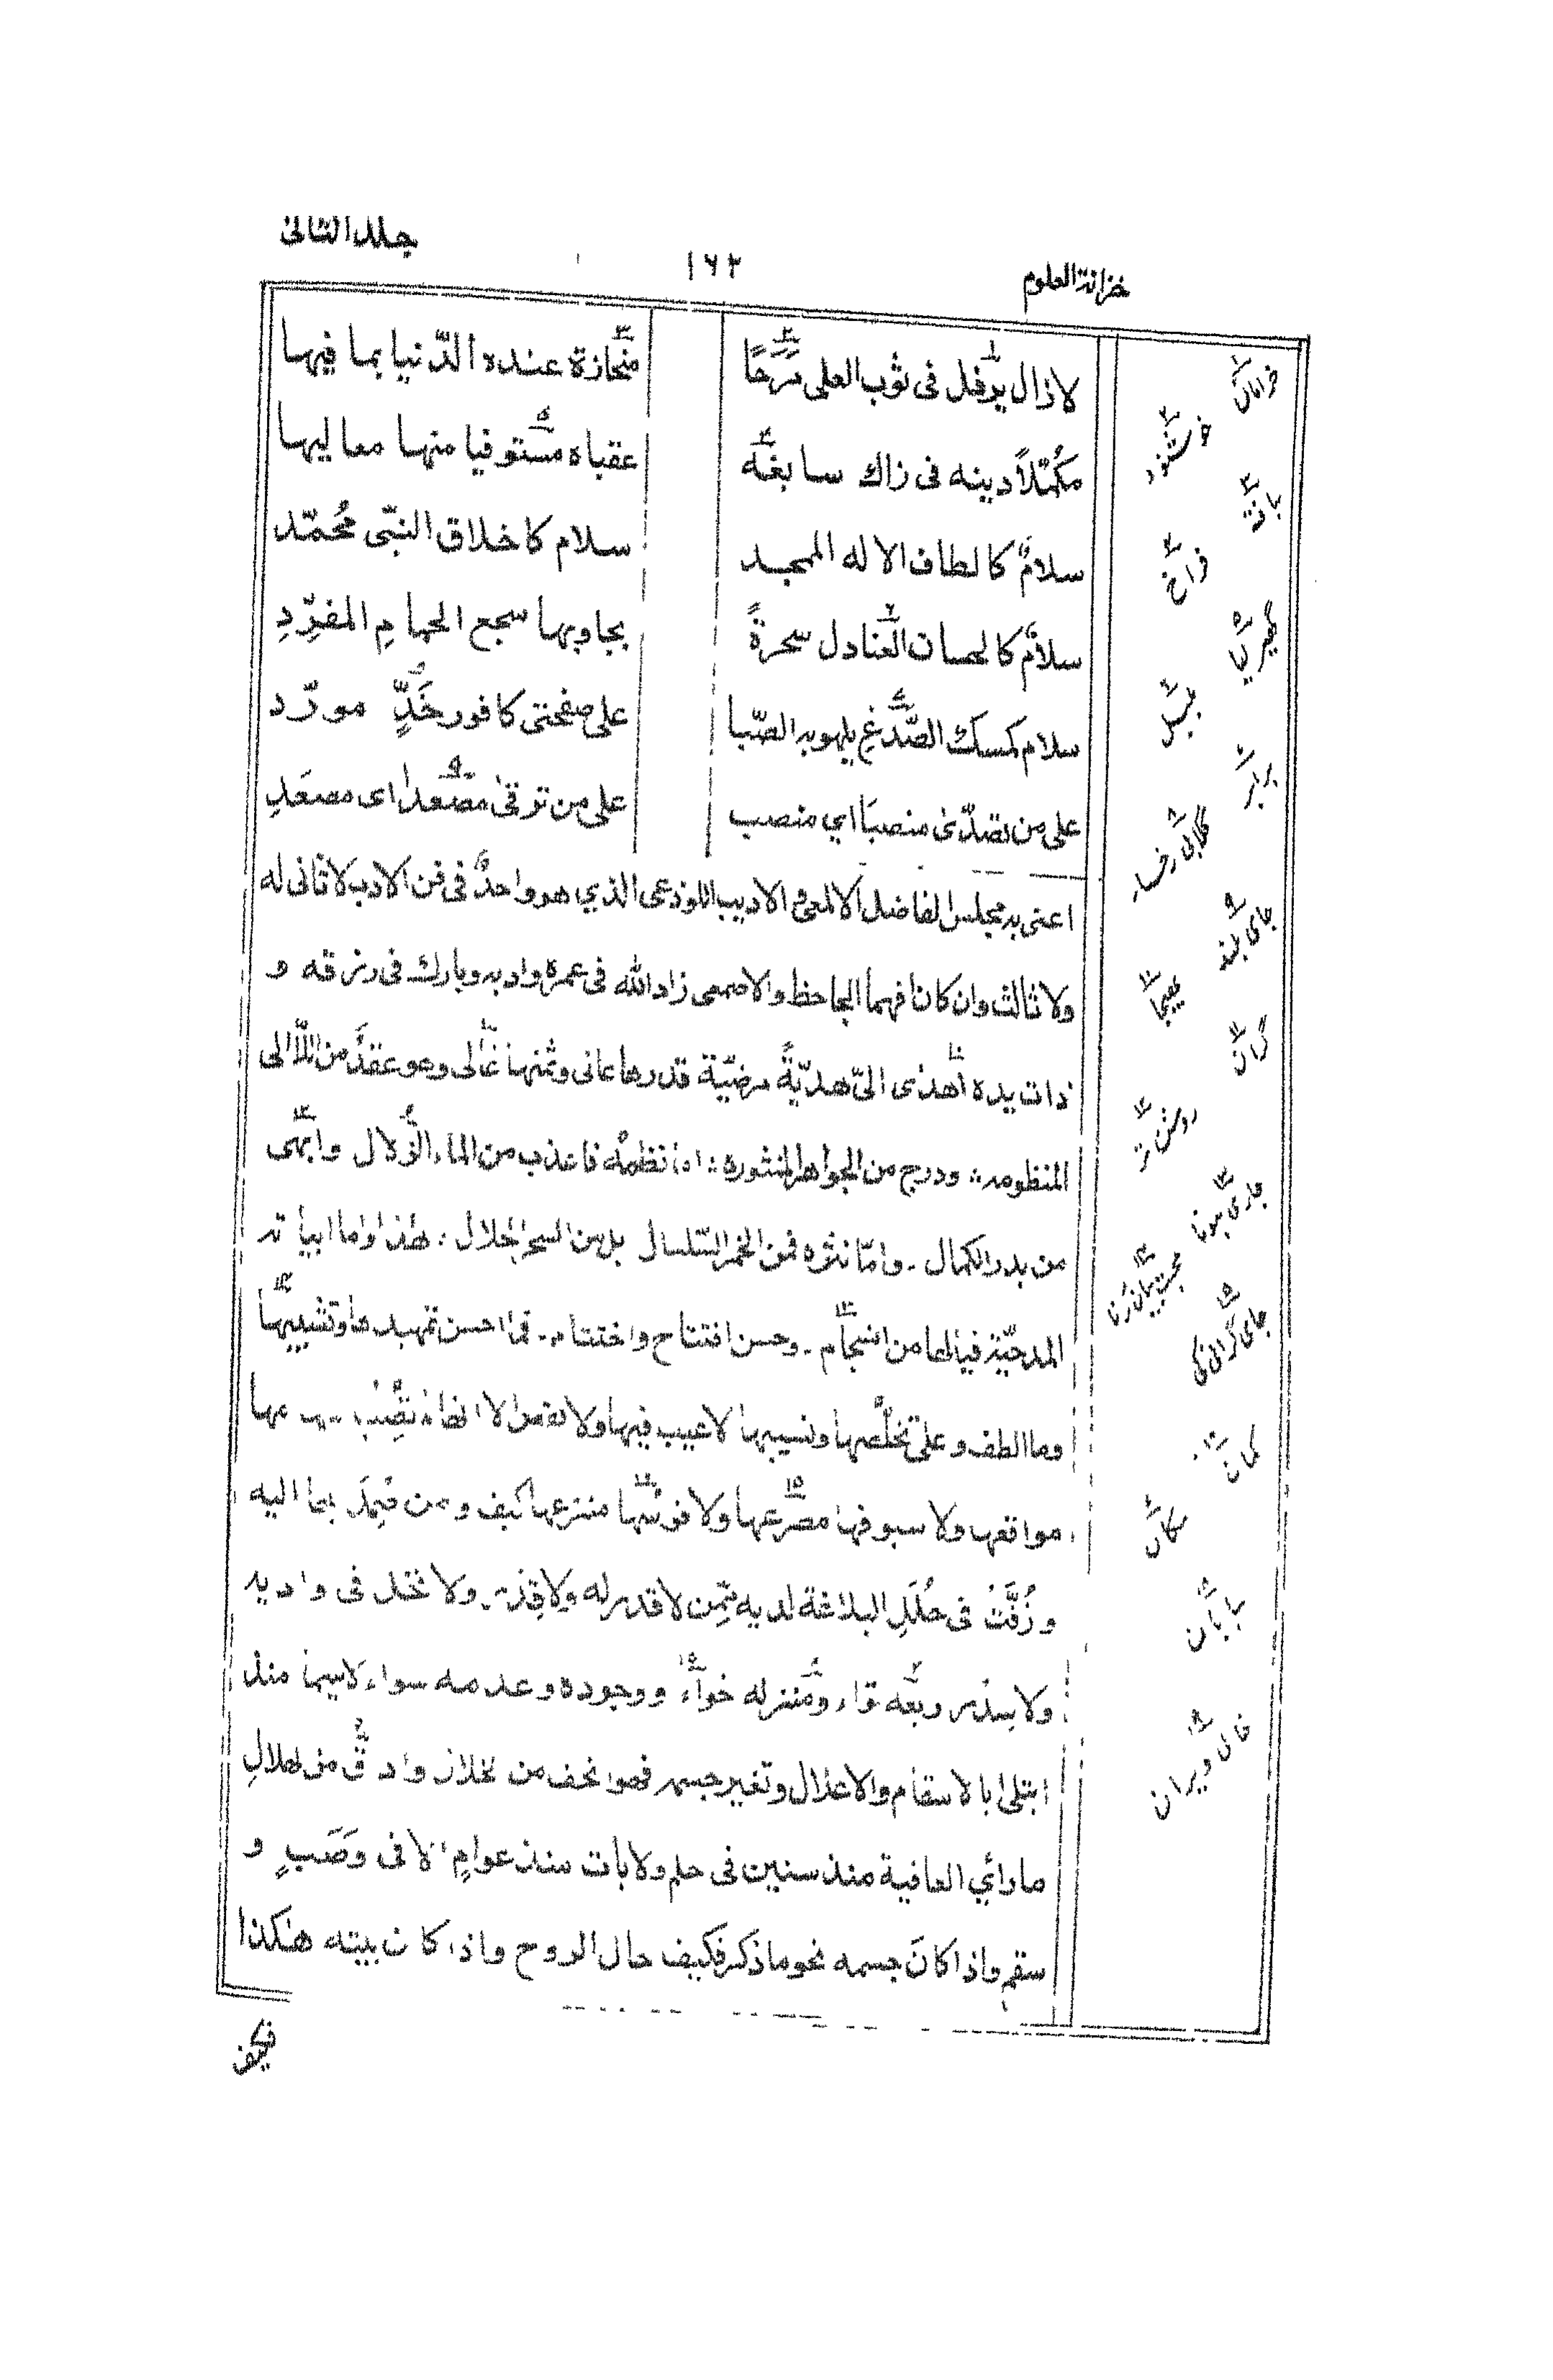 خزانة العلوم
١٦٢
جلد الثانی
لازال يرفل فی ثوب العلی مَرَحًا
منحازة عنده الدّنيا بما فيها
مكمّلاً دينه فی زاك سابغه
عقباه مستوفيا منها معاليها
سلامٌ كالطاف الاله الممجد
سلام كاخلاق النبّی محُمّد
سلامٌ كالحسات العنادل سحرةً
يجاوبها سجع الحمامِ المغرّدِ
سلام كمسك الصّدغِ يلهو به الصّبا
علی صفحتی كافور خَدٍّ مورّد
علی من تصدّی منصبًا ای منصب
علی من توقی مصعدا ای مصعَدِ
اعنی به مجلس الفاضل الالمعی الاديب اللوذعی الذي هو واحدٌ فی فن الادب لا ثانی له
ولا ثالث وان كانا فهما الجاحظ والاصمعی زاد الله فی عمره وادبه وبارك فی رزقه و
ذات يده اُهدی الیّ هديّةً مرضيّة قدرها عالی وثمنها غالی وهو عقدٌ من اللّالی
المنظومه ؛ ودرج من الجواهر المنثوره ؛ اما نظمه فاعذب من الماء الزّلال وابهی
من بدر الكمال ـ وامّا نثره فمن الخمر السّلسال بل من السحر الحلال ؛ هذا واما ابياته
المدحيّة فيالها من انسجام ـ وحسن افتتاح واختتام ـ فما احسن تمهيدها وتشبيبها
وما الطف و علی تخلّصها ونسيبها لا عيب فيها ولا نقص الا انها لم تصب
مواقعها ولا سيوفها مصرعها ولا قوسها منزعها كيف و من بها اليه
و زُفَّتْ فی حُلَلِ البلاغة لديه ممّن لا قدر له ولا ولا نخل فی واديه
ولا سدر ربعه تواء ومنزله خواءٌ ووجوده وعدمه سواء لاسيما منذ
ابتلی بالاسقام والاعلال وتغير جسمه فهو انحف من الخلال وادقّ من الهلالِ
ما رائي العافية منذ سنين فی حلم ولا بات منذ عوامٍ الا فی وصَبٍ و
سقم واذا كانَ جسمه نحو ما ذكر فكيف حال الروح واذا كان بيته هٰكذا
فكيف
خراماں
خوشنود
یافته
فراخ
گھیر لیا
بلبل
برابر
گلابی رخسار
جای بلند
گران
روشن تر
جاری ہونا
کمان
مکان
بیابان
خالی ویران